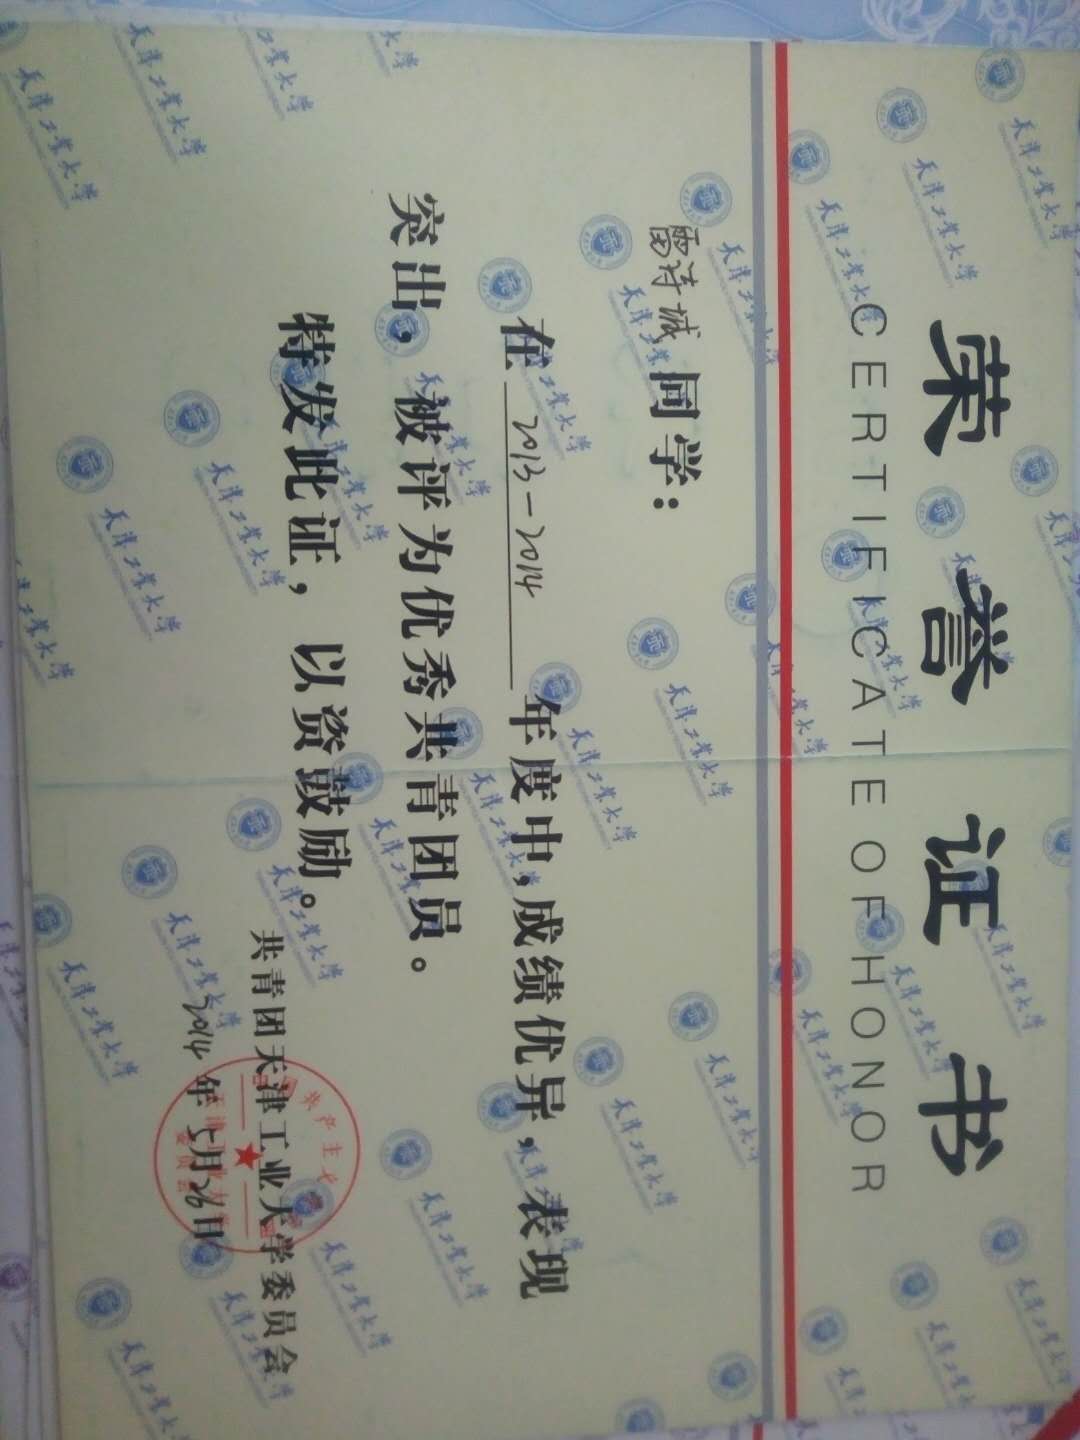 荣誉证书
CERTIFICATE OF HONOR
雷诗城 同学：
在 2013－2014 年度中，成绩优异，表现
突出，被评为优秀共青团员。
特发此证，以资鼓励。
共青团天津工业大学委员会
2014年5月26日
天津工业大学